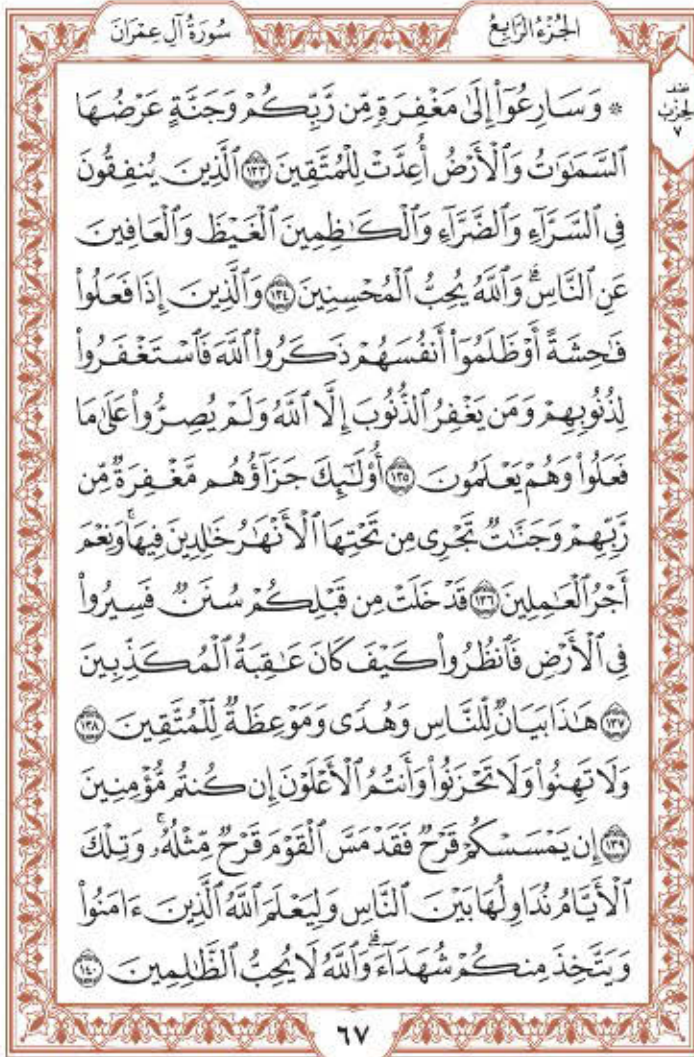 سُورَةُ آلِ عِمْرَانَ
الجُزْءُ الرَّابِعُ
نصف
الحزب
٧
۞ وَسَارِعُوٓاْ إِلَىٰ مَغْفِرَةٖ مِّن رَّبِّكُمْ وَجَنَّةٍ عَرْضُهَا
ٱلسَّمَٰوَٰتُ وَٱلْأَرْضُ أُعِدَّتْ لِلْمُتَّقِينَ ١٣٣ ٱلَّذِينَ يُنفِقُونَ
فِي ٱلسَّرَّآءِ وَٱلضَّرَّآءِ وَٱلْكَٰظِمِينَ ٱلْغَيْظَ وَٱلْعَافِينَ
عَنِ ٱلنَّاسِۗ وَٱللَّهُ يُحِبُّ ٱلْمُحْسِنِينَ ١٣٤ وَٱلَّذِينَ إِذَا فَعَلُواْ
فَٰحِشَةً أَوْ ظَلَمُوٓاْ أَنفُسَهُمْ ذَكَرُواْ ٱللَّهَ فَٱسْتَغْفَرُواْ
لِذُنُوبِهِمْ وَمَن يَغْفِرُ ٱلذُّنُوبَ إِلَّا ٱللَّهُ وَلَمْ يُصِرُّواْ عَلَىٰ مَا
فَعَلُواْ وَهُمْ يَعْلَمُونَ ١٣٥ أُوْلَٰٓئِكَ جَزَآؤُهُم مَّغْفِرَةٞ مِّن
رَّبِّهِمْ وَجَنَّٰتٞ تَجْرِي مِن تَحْتِهَا ٱلْأَنْهَٰرُ خَٰلِدِينَ فِيهَاۚ وَنِعْمَ
أَجْرُ ٱلْعَٰمِلِينَ ١٣٦ قَدْ خَلَتْ مِن قَبْلِكُمْ سُنَنٞ فَسِيرُواْ
فِي ٱلْأَرْضِ فَٱنظُرُواْ كَيْفَ كَانَ عَٰقِبَةُ ٱلْمُكَذِّبِينَ
١٣٧ هَٰذَا بَيَانٞ لِّلنَّاسِ وَهُدٗى وَمَوْعِظَةٞ لِّلْمُتَّقِينَ ١٣٨
وَلَا تَهِنُواْ وَلَا تَحْزَنُواْ وَأَنتُمُ ٱلْأَعْلَوْنَ إِن كُنتُم مُّؤْمِنِينَ
١٣٩ إِن يَمْسَسْكُمْ قَرْحٞ فَقَدْ مَسَّ ٱلْقَوْمَ قَرْحٞ مِّثْلُهُۥۚ وَتِلْكَ
ٱلْأَيَّامُ نُدَاوِلُهَا بَيْنَ ٱلنَّاسِ وَلِيَعْلَمَ ٱللَّهُ ٱلَّذِينَ ءَامَنُواْ
وَيَتَّخِذَ مِنكُمْ شُهَدَآءَۗ وَٱللَّهُ لَا يُحِبُّ ٱلظَّٰلِمِينَ ١٤٠
٦٧